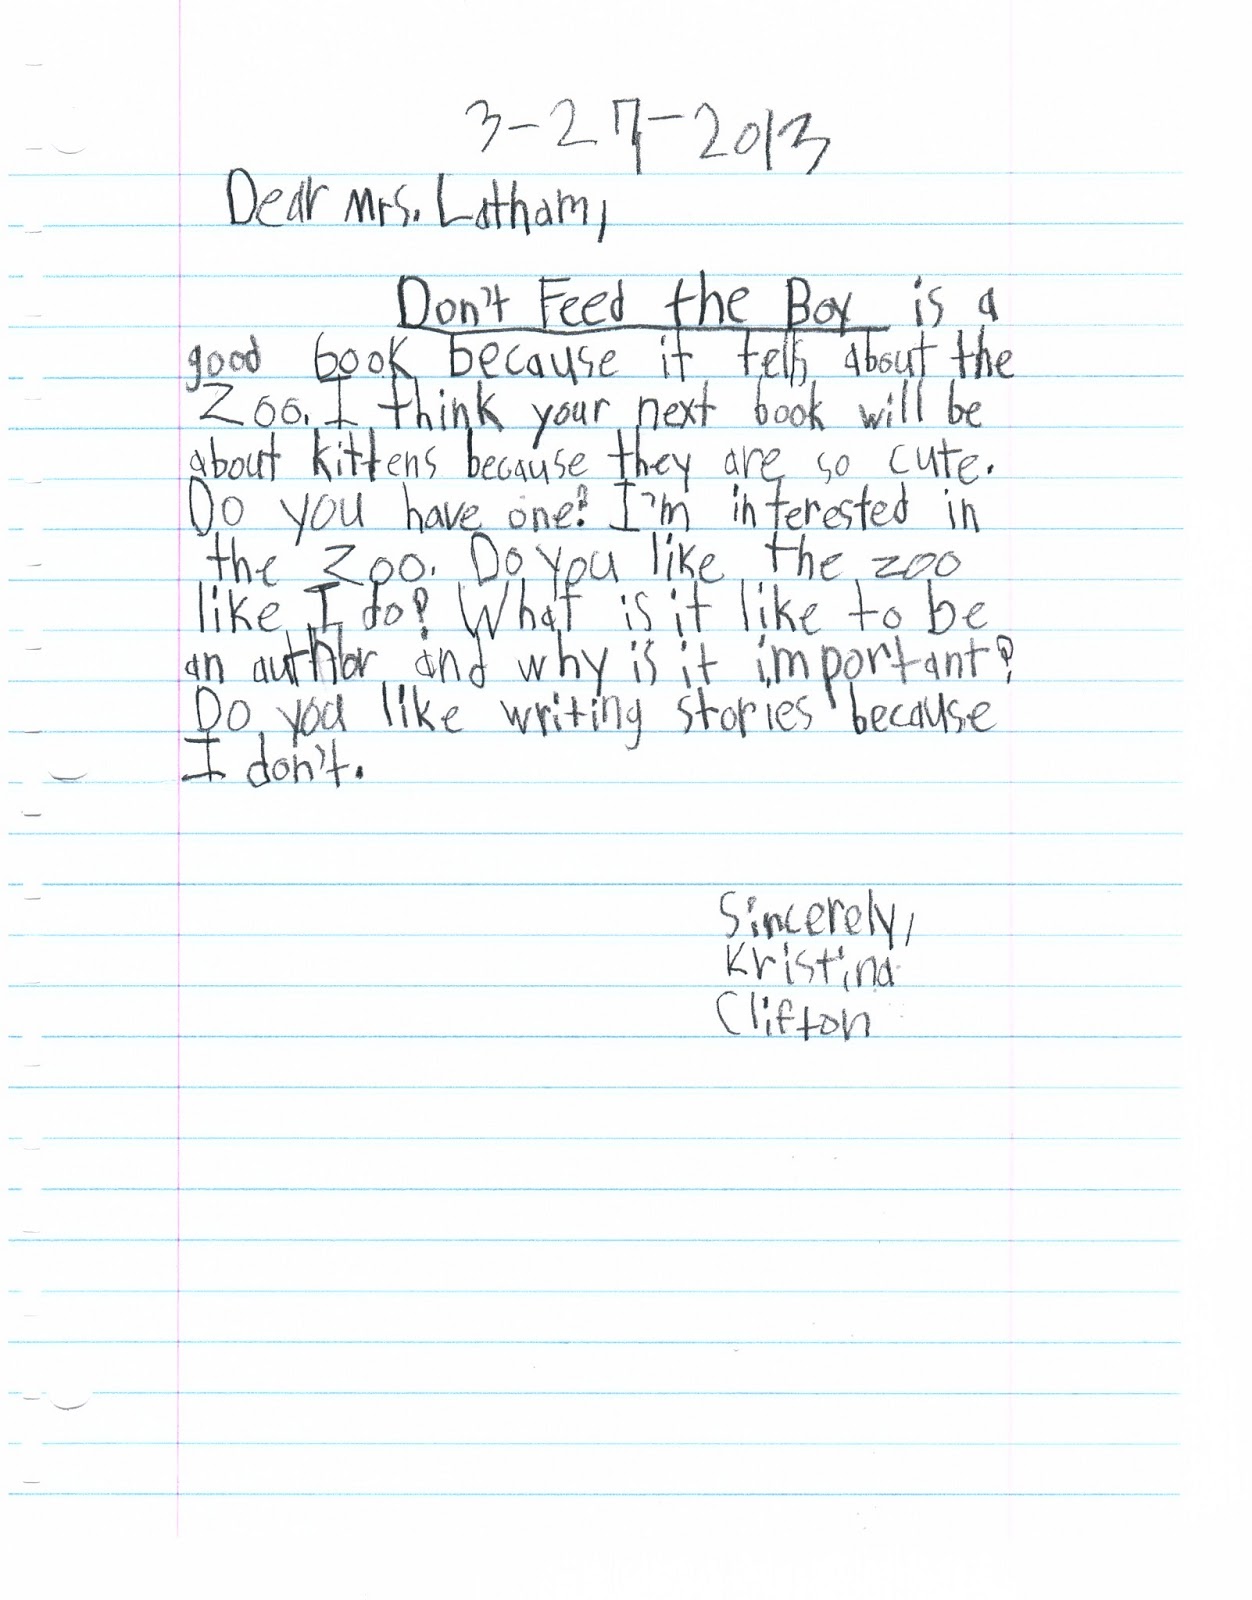 3-27-2013
Dear Mrs. Latham,
Don't Feed the Boy is a
good book because it tells about the
Zoo. I think your next book will be
about kittens because they are so cute.
Do you have one? I'm interested in
the Zoo. Do you like the zoo
like I do? What is it like to be
an author and why is it important?
Do you like writing stories because
I don't.
Sincerely,
Kristina
Clifton